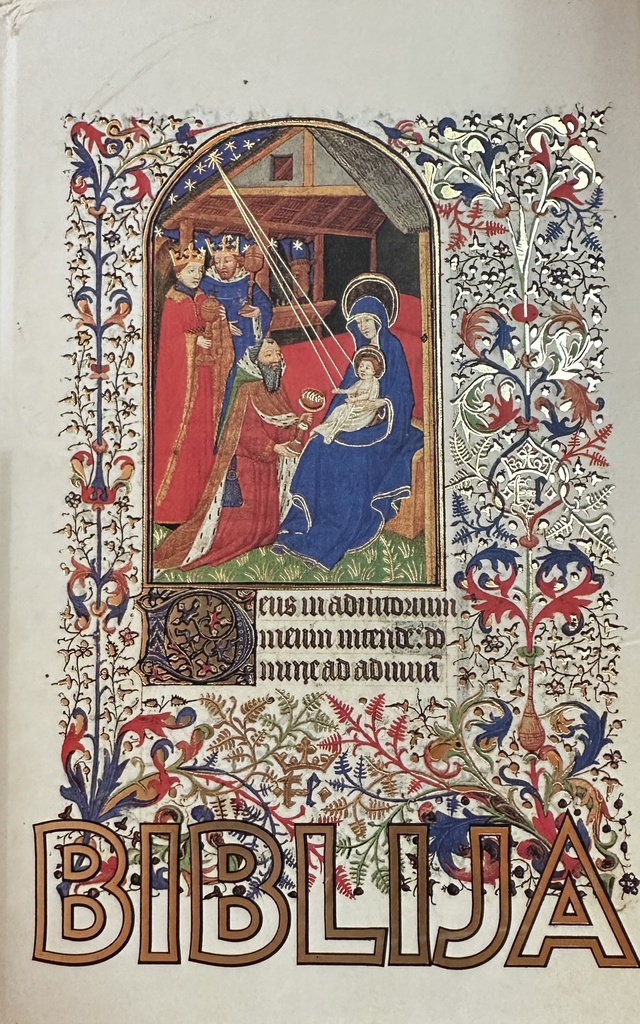 Deus in adiutorium
meum intende: do
mine ad adiuua
e
e
BIBLIJA